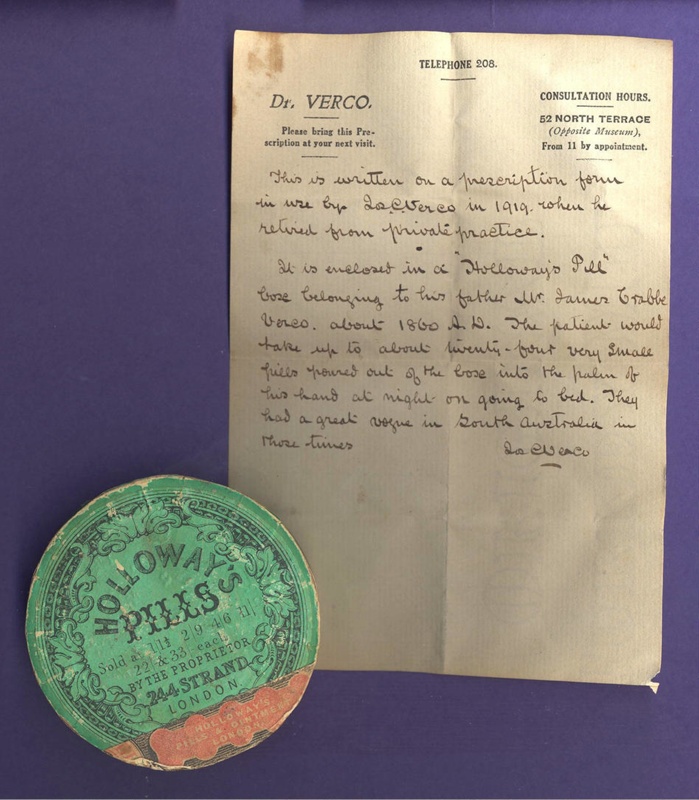 TELEPHONE 208.
Dr. VERCO.
Please bring this Pre-
scription at your next visit.
CONSULTATION HOURS.
52 NORTH TERRACE
(Opposite Museum),
From 11 by appointment.
This is written on a prescription form
in use by Jos. C. Verco in 1919. when he
retired from private practice.
It is enclosed in a "Holloway's Pill"
box belonging to his father Mr. James Crabbe
Verco. about 1860 A.D. The patient would
take up to about twenty-four very small
pills poured out of the box into the palm of
his hand at night on going to bed. They
had a great vogue in South Australia in
those times
Jos C Verco
HOLLOWAY'S
PILLS
Sold at 1/1½ 2/9 4/6 11/
22/ & 33/ each
BY THE PROPRIETOR
244 STRAND
LONDON
HOLLOWAY'S
PILLS & OINTMENT
LONDON